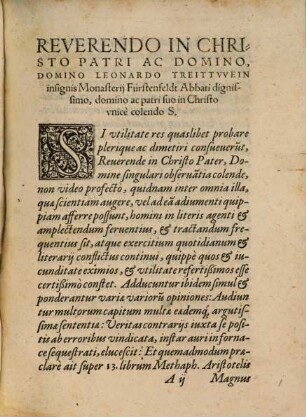 REVERENDO IN CHRI-
STO PATRI AC DOMINO,
DOMINO LEONARDO TREITTVVEIN
insignis Monasterij Fürstenfeldt Abbati dignis-
simo, domino ac patri suo in Christo
vnicè colendo S.
SI vtilitate res quaslibet probare
plerique ac dimetiri consueuerūt,
Reuerende in Christo Pater, Do-
mine singulari obseruātia colende,
non video profectò, quidnam inter omnia illa,
quæ scientiam augere, vel ad eā adiumenti quip-
piam afferre possunt, homini in literis agenti &
amplectendum feruentius, & tractandum fre-
quentius sit, atque exercitium quotidianum &
literarij conflictus continui, quippè quos & iu-
cunditate eximios, & vtilitate refertißimos esse
certißimò constet. Adducuntur ibidem simul &
ponderantur varia variorū opiniones: Audiun
tur multorum capitum multæ eædemq́; argutis-
simæ sententiæ: Veritas contrarijs iuxta se posi-
tis ab erroribus vindicata, instar auri in forna-
ce sequestrati, elucescit: Et quemadmodum præ-
clarè ait super 13. librum Methaph. Aristotelis
A ij Magnus